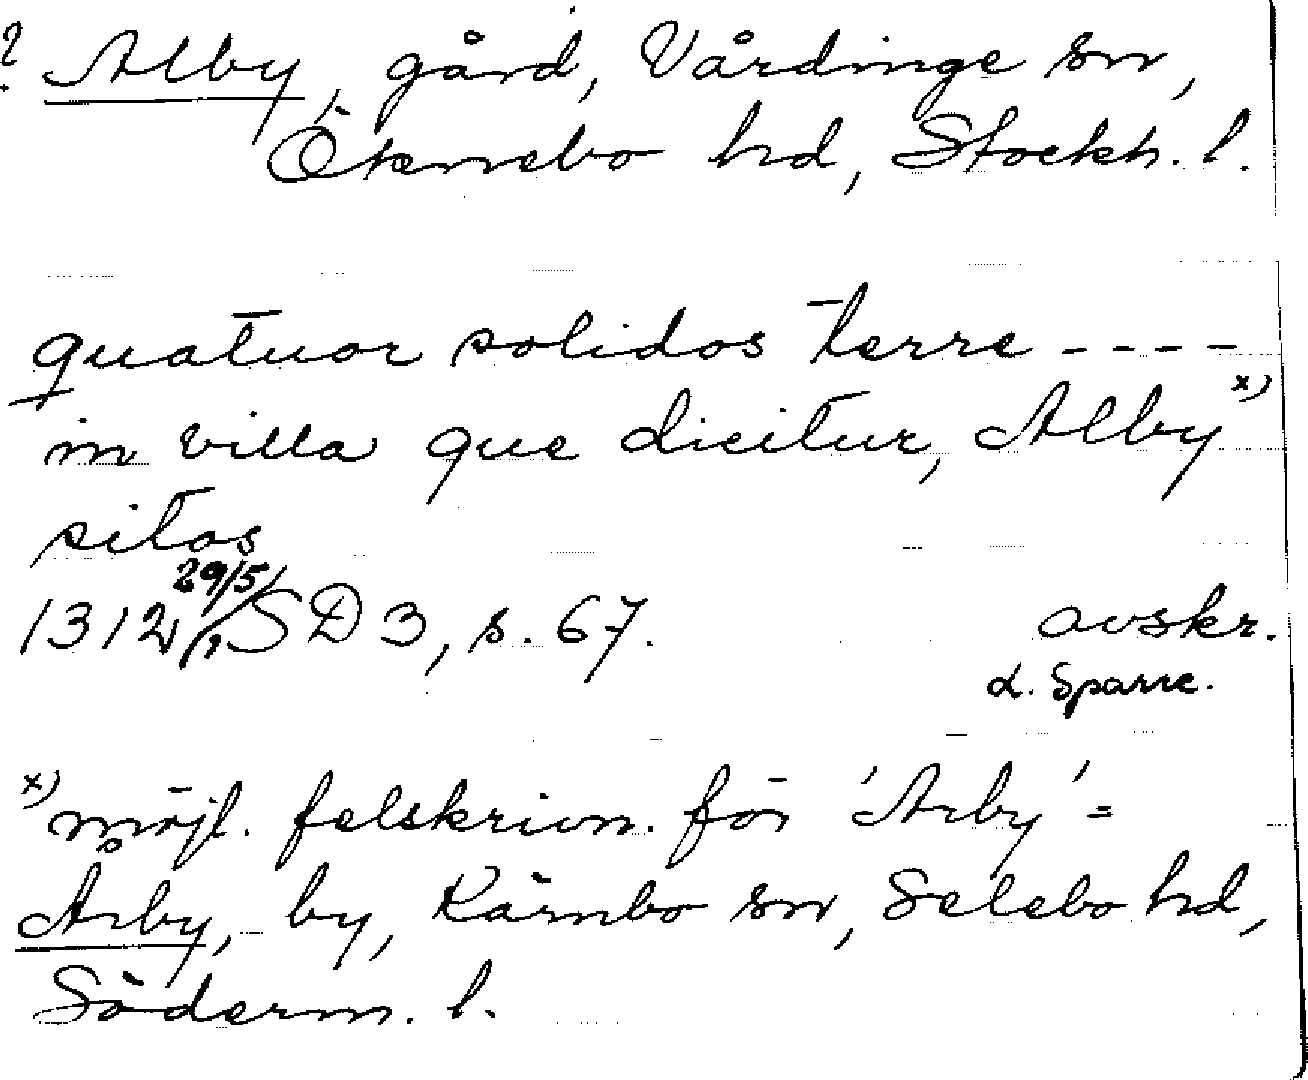 ? Alby, gård, Vårdinge sn,
Öknebo hd, Stockh. l.
quatuor solidos terre ----
in villa que dicitur, Alby x)
sitos
1312 29/5 SD 3, s. 67. avskr.
d. Sparre.
x) möjl. felskrivn. för 'Arby' =
Årby, by, Kärnbo sn, Selebo hd,
Söderm. l.